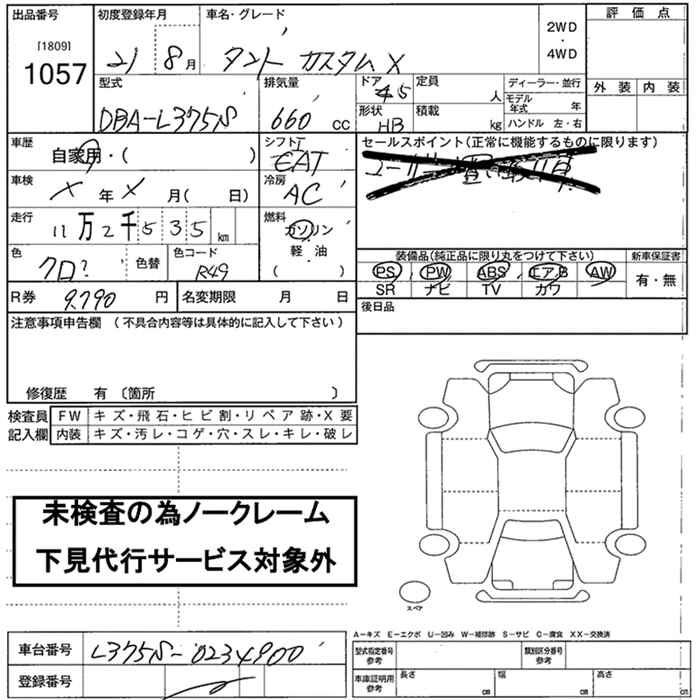 出品番号 初度登録年月 車名・グレード 評価点
[1809]
1057 21 8月 タント カスタムX 2WD・4WD
型式 排気量 ドア 定員 ディーラー・並行 外装 内装
DBA-L375S 660 cc 45 人 モデル年式 年
形状 積載 HB kg ハンドル 左・右
車歴 シフト セールスポイント(正常に機能するものに限ります)
自家用・( ) AT
車検 冷房
X年X月( 日) AC
走行 燃料
11万2千535km ガソリン
軽・油
( )
色 色替 色コード 装備品(純正品に限り丸をつけて下さい) 新車保証書
クロ? R49 PS PW ABS エアB AW 有・無
SR ナビ TV カワ
R券 9,790円 名変期限 月 日 後日品
注意事項申告欄(不具合内容等は具体的に記入して下さい)
修復歴 有〔箇所 〕
検査員 FW キズ・飛石・ヒビ割・リペア跡・X要
記入欄 内装 キズ・汚レ・コゲ・穴・スレ・キレ・破レ
未検査の為ノークレーム
下見代行サービス対象外
スペア
A-キズ E-エクボ U-凹み W-補修跡 S-サビ C-腐食 XX-交換済
車台番号 L375S-0234900 型式指定番号参考 類別区分番号参考
登録番号 車庫証明用参考 長さ cm 幅 cm 高さ cm